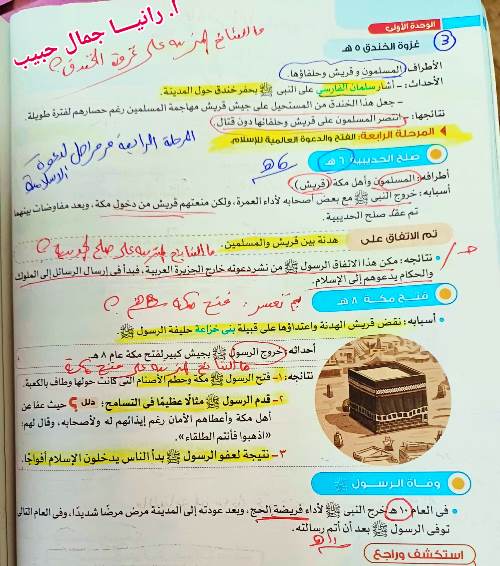 أ. رانيا جمال حبيب
الوحدة الأولى
3
ما النتائج المترتبه على غزوة الخندق؟
غزوة الخندق ٥ هـ
الأطراف: المسلمون و قريش وحلفاؤها.
الأحداث: - أشار سلمان الفارسي على النبي ﷺ بحفر خندق حول المدينة.
- جعل هذا الخندق من المستحيل على جيش قريش مهاجمة المسلمين رغم حصارهم لفترة طويلة.
نتائجها: انتصر المسلمون على قريش وحلفائها دون قتال.
المرحلة الرابعة: الفتح والدعوة العالمية للإسلام.
المرحلة الرابعة من مراحل الدعوة الإسلامية
صلح الحديبية ٦ هـ
٦هـ
أطرافه: المسلمون وأهل مكة (قريش)
أسبابه: خروج النبي ﷺ مع بعض أصحابه لأداء العمرة، ولكن منعتهم قريش من دخول مكة، وبعد مفاوضات بينهما
تم عقد صلح الحديبية.
تم الاتفاق على هدنة بين قريش والمسلمين.
ما النتائج المترتبه على صلح الحديبية؟
• نتائجه: مكن هذا الاتفاق الرسول ﷺ من نشر دعوته خارج الجزيرة العربية، فبدأ في إرسال الرسائل إلى الملوك
والحكام يدعوهم إلى الإسلام.
فتح مكة ٨ هـ
بم تفسر: فتح مكة ٨هـ؟
• أسبابه: نقض قريش الهدنة واعتداؤها على قبيلة بني خزاعة حليفة الرسول ﷺ
أحداثه: خروج الرسول ﷺ بجيش كبير لفتح مكة عام ٨ هـ.
ما النتائج المترتبه على فتح مكة
نتائجه: ١- فتح الرسول ﷺ مكة وحطم الأصنام التي كانت حولها وطاف بالكعبة.
٢- قدم الرسول ﷺ مثالًا عظيمًا في التسامح؛ دلل؟ حيث عفا عن
أهل مكة وأعطاهم الأمان رغم إيذائهم له ولأصحابه، وقال لهم:
«اذهبوا فأنتم الطلقاء».
٣- نتيجة لعفو الرسول ﷺ بدأ الناس يدخلون الإسلام أفواجًا.
وفاة الرسول ﷺ
في العام ١٠ هـ خرج النبي ﷺ لأداء فريضة الحج، وبعد عودته إلى المدينة مرض مرضًا شديدًا، وفي العام التالي
توفى الرسول ﷺ بعد أن أتم رسالته.
١١هـ
استكشف وراجع